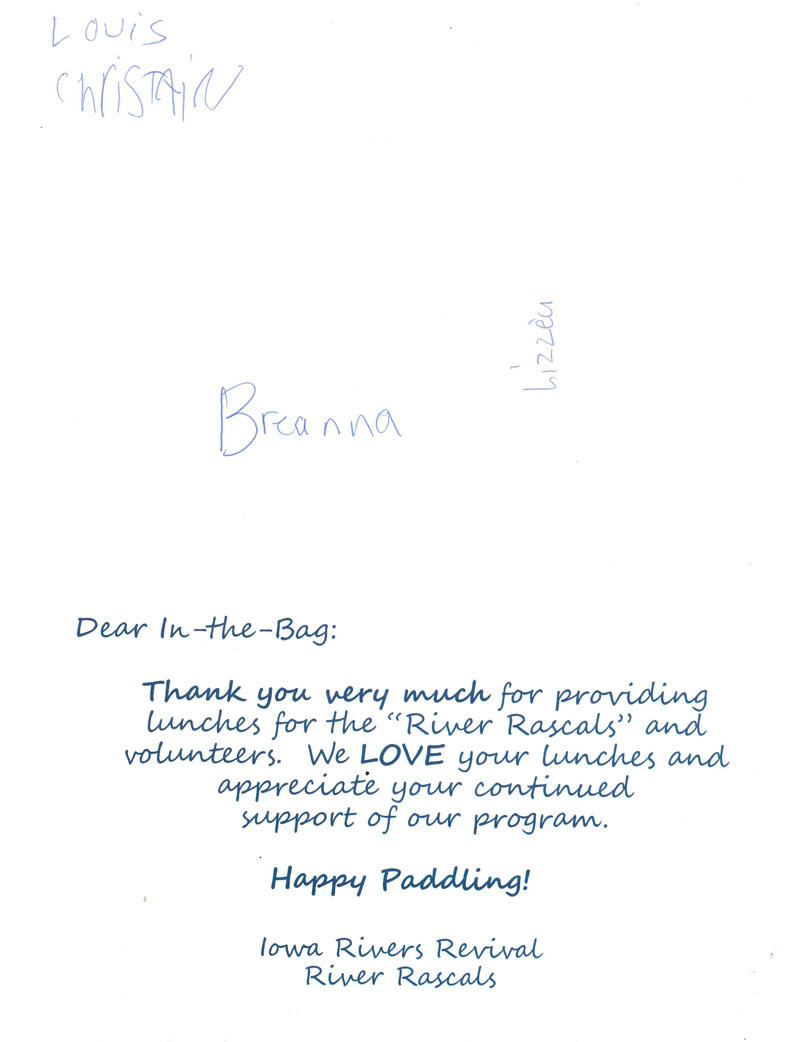 Louis
ChrisTAiN
Lizzeu
Breanna
Dear In-the-Bag:
Thank you very much for providing
lunches for the “River Rascals” and
volunteers. We LOVE your lunches and
appreciate your continued
support of our program.
Happy Paddling!
Iowa Rivers Revival
River Rascals